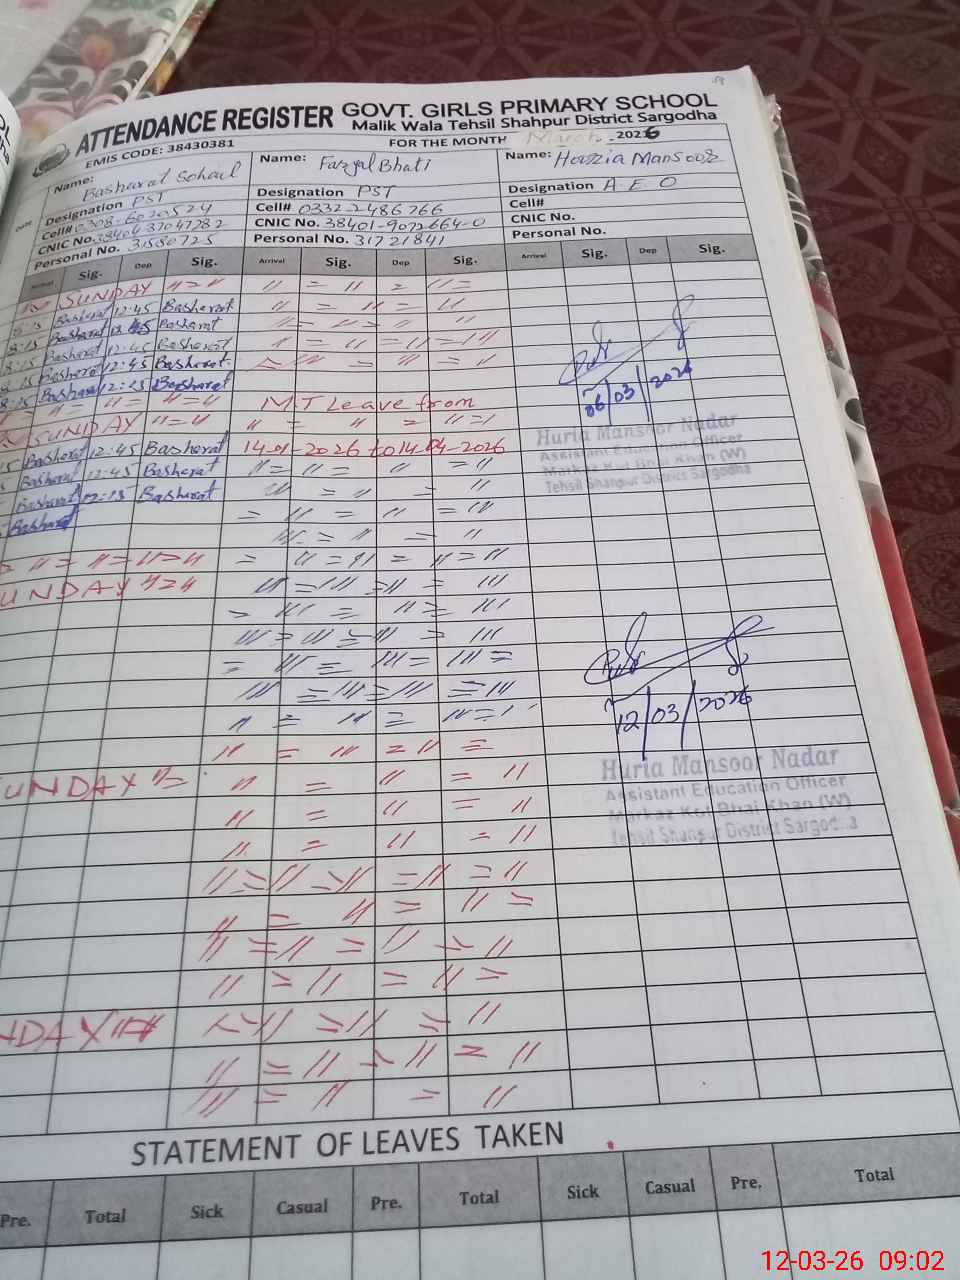 ATTENDANCE REGISTER GOVT. GIRLS PRIMARY SCHOOL
Malik Wala Tehsil Shahpur District Sargodha
EMIS CODE: 38430381 FOR THE MONTH March. 2026
Name: Basharat Sohail
Designation PST
Cell# 0308-6020524
CNIC No. 38404 37047282
Personal No. 31580725
Name: Faizal Bhati
Designation PST
Cell# 0332 2486266
CNIC No. 38401-9072664-0
Personal No. 31721841
Name: Houzia Mansoor
Designation A.E.O
Cell#
CNIC No.
Personal No.
Arrival Sig. Dep Sig. Arrival Sig. Dep Sig. Arrival Sig. Dep Sig.
SUNDAY 11 = 11 11 = 11 = 11 =
8:15 Basharat 12:45 Basharat 11 = 11 = 11
8:15 Basharat 12:45 Basharat
8:15 Basharat 12:45 Basharat
8:15 Basharat 12:45 Basharat
8:15 Basharat 12:15 Basharat
MT Leave from
SUNDAY 11 = 11
Basharat 12:45 Basharat 14-01-2026 to 14-04-2026
Basharat 12:45 Basharat
Basharat 12:15 Basharat
Basharat
06/03/2026
Huria Mansoor Nadar
Assistant Education Officer
Markaz Kot Bhai Khan (W)
Tehsil Shahpur District Sargodha
SUNDAY 11 = 11
12/03/2026
Huria Mansoor Nadar
Assistant Education Officer
Markaz Kot Bhai Khan (W)
Tehsil Shahpur District Sargodha
SUNDAY 11 =
NDAY 11 = 11
STATEMENT OF LEAVES TAKEN
Pre. Total Sick Casual Pre. Total Sick Casual Pre. Total
12-03-26 09:02